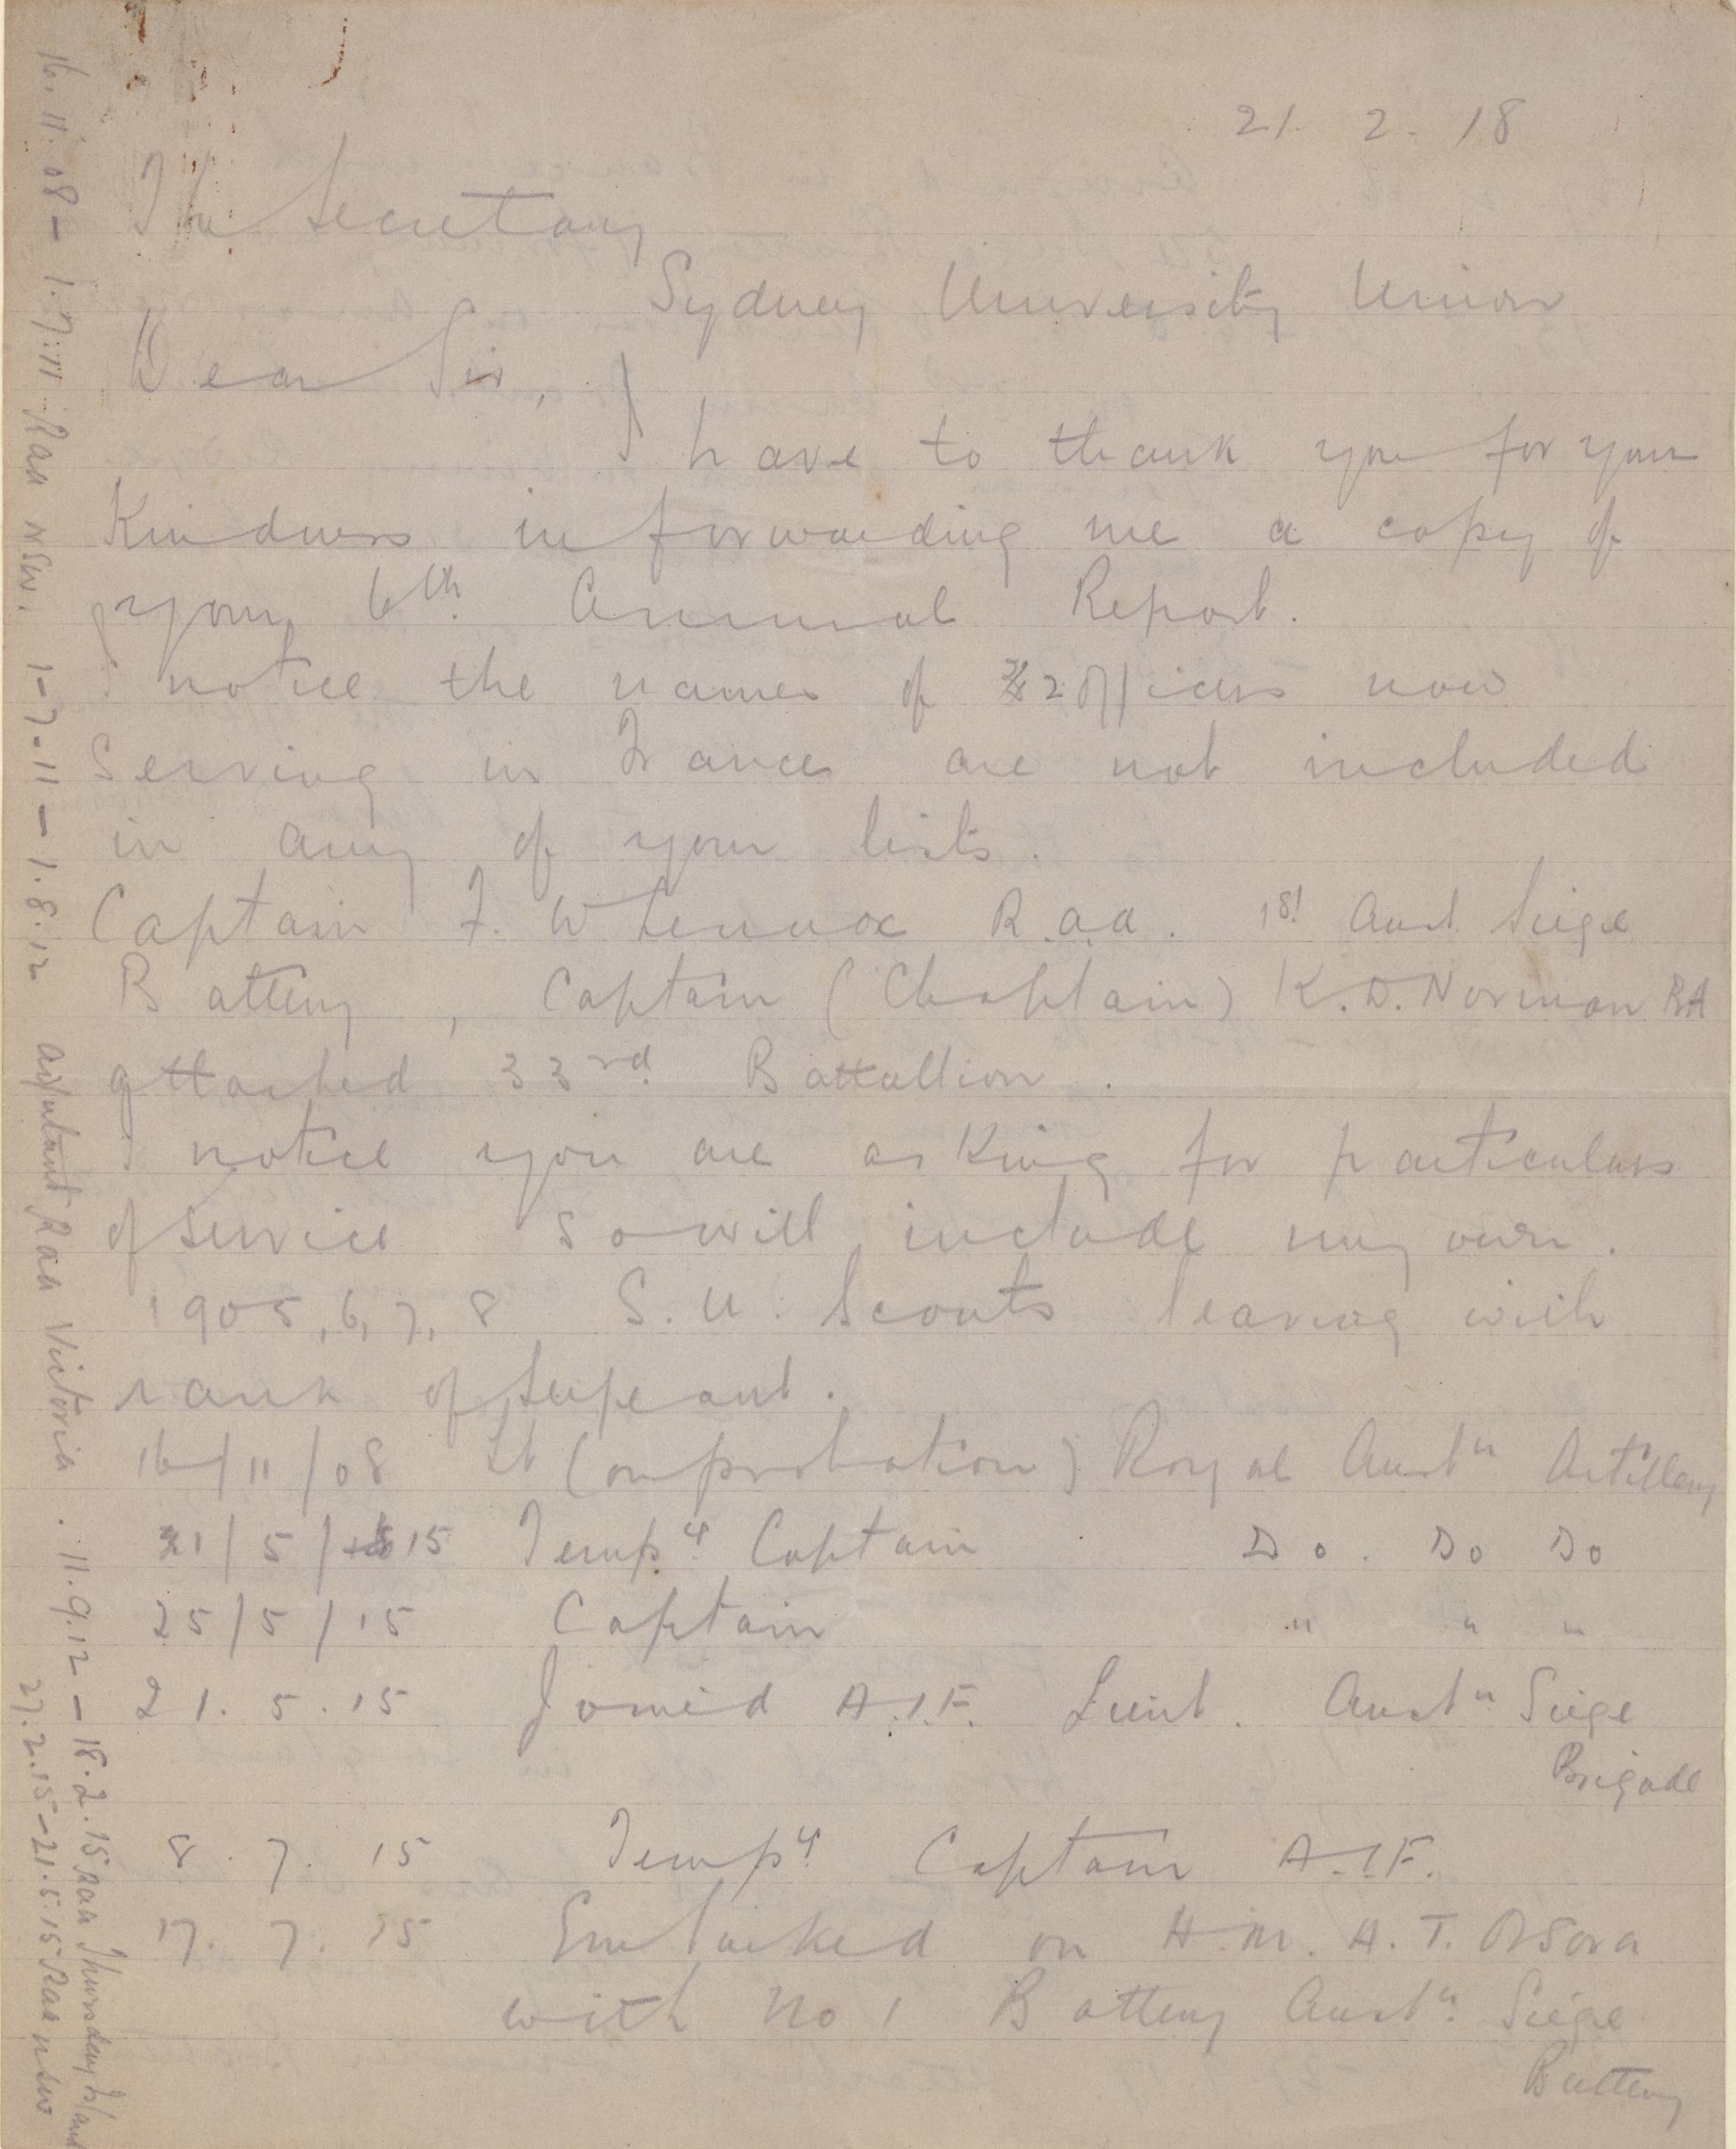 21. 2. 18
The Secretary
Sydney University Union
Dear Sir,
I have to thank you for your
Kindness in forwarding me a copy of
your 6th Annual Report.
I notice the names of 2 Officers now
serving in France are not included
in any of your lists.
Captain F. W Lennox R.A.A. 1st Aust. Siege
Battery, Captain (Chaplain) K. D. Norman BA
attached 33rd Battallion.
I notice you are asking for particulars
of service so will include my own.
1905, 6, 7, 8 S. U. Scouts leaving with
rank of Sergeant.
16/11/08 Lt (on probation) Royal Austn Artillery
21/5/15 Tempy Captain Do. Do Do
25/5/15 Captain " " "
21. 5. 15 Joined A.I.F. Lieut. Austn Siege
Brigade
8. 7. 15 Tempy Captain A.I.F.
17. 7. 15 Embarked on H.M.A.T. Orsova
with No 1 Battery Austn Siege
Battery
16.11.08 – 1.7.11 RAA NSW. 1-7-11 – 1.8.12 adjutant RAA Victoria. 11.9.12 – 18.2.15 RAA Thursday Island
27.2.15 – 21.5.15 RAA NSW